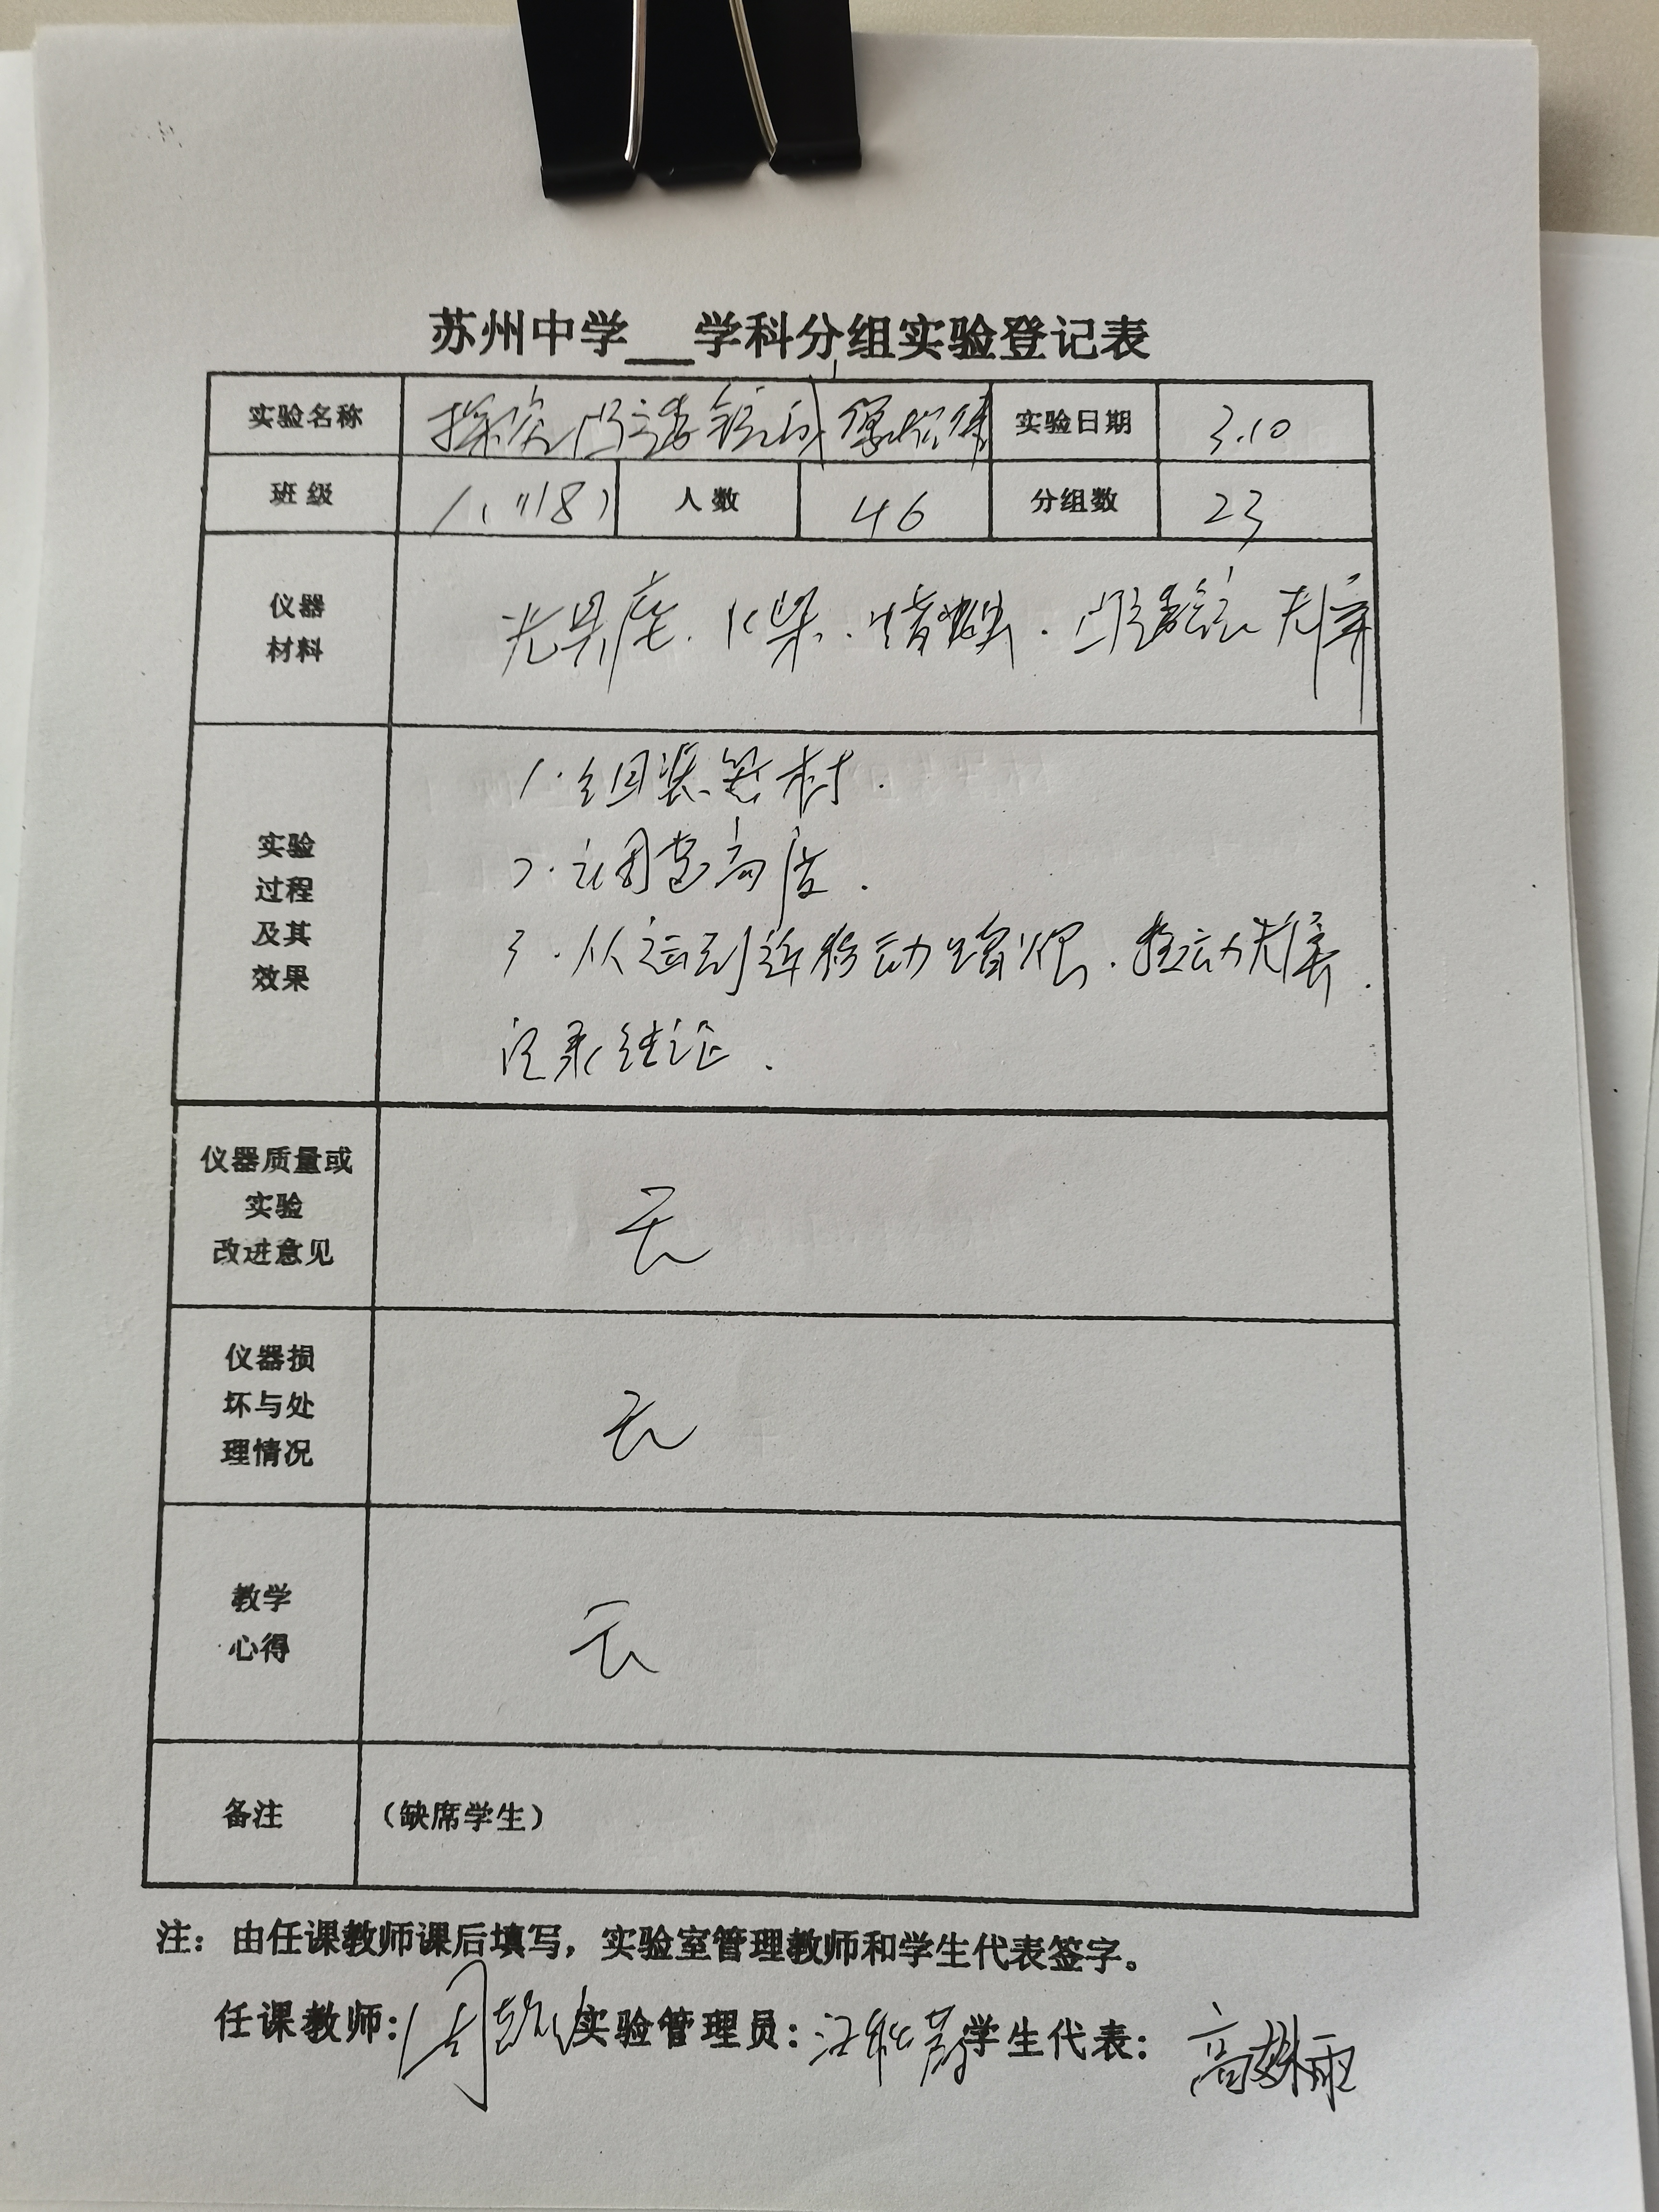 苏州中学__学科分组实验登记表
实验名称 探究凸透镜成像规律 实验日期 3.10
班级 八(18) 人数 46 分组数 23
仪器
材料
光具座.火柴.蜡烛.凸透镜 光屏
实验
过程
及其
效果
1.组装器材.
2.调整高度.
3.从远到近移动蜡烛.移动光屏.
记录结论.
仪器质量或
实验
改进意见
无
仪器损
坏与处
理情况
无
教学
心得
无
备注 (缺席学生)
注:由任课教师课后填写,实验室管理教师和学生代表签字。
任课教师:周 实验管理员:汪 学生代表:高姝雨